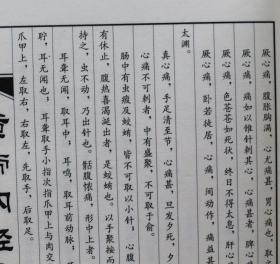 厥心痛，腹胀胸满，心痛甚，胃心痛也
厥心痛，痛如以锥针刺其心，心痛甚者，脾心
厥心痛，色苍苍如死状，终日不得太息，肝心
厥心痛，卧若徒居，心痛，间动作，痛益甚
太渊。
真心痛，手足清至节，心痛甚，旦发夕死，夕
心痛不可刺者，中有盛聚，不可取于俞。
肠中有虫瘕及蛟蛕，皆不可取以小针；心腹
有休止，腹热喜渴涎出者，是蛟蛕也。以手聚按而
持之，虫不动，乃出针也。腹憹痛，形中上者。
耳聋无闻，取耳中；耳鸣，取耳前动脉；
聍，耳无闻也；耳聋取手小指次指爪甲上与肉交
爪甲上，左取右，右取左，先取手，后取足。
帝内经